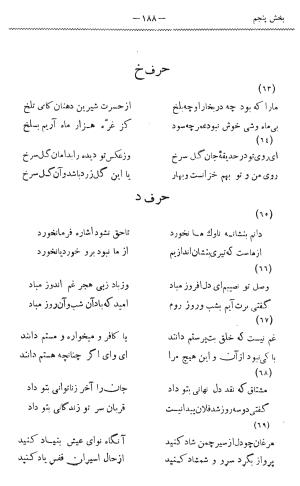 بخش پنجم — ۱۸۸ —
حرف خ
(۶۳)
ما را که بود چه در بخارا و چه بلخ از حسرت شیرین دهنان کامی تلخ
بی ماه وشی خوش نبود عمر چه سود کز غرّه هزار ماه آریم بسلخ
(۶۴)
ای روی تو در حدیقهٔ جان گل سرخ وز عکس تو دیده را بدامان گل سرخ
روی من و تو بهم خزانست و بهار یا این گل زرد باشد و آن گل سرخ
حرف د
(۶۵)
دانم بنشانه ناوک ما نخورد تا حق نشود اشاره فرما نخورد
از ماست که تیری بنشان اندازیم از ما نبود برو خورد یا نخورد
(۶۶)
وصل تو نصیبم ای دل افروز مباد وز باد زبی هجر غم اندوز مباد
گفتی برت آیم بشب و روز روم امید که باد آن شب و آن روز مباد
(۶۷)
غم نیست که خلق بت پرستم دانند یا کافر و میخواره و مستم دانند
با کی نبود از آن و این هیچ مرا ای وای اگر چنانچه هستم دانند
(۶۸)
مشتاق که نقد دل نهانی بتو داد جان را آخر ز ناتوانی بتو داد
گفتی دو سه روز شد فلان پیدا نیست قربان سر تو زندگانی بتو داد
(۶۹)
مرغان چو دل از سیر چمن شاد کنید آنگاه نوای عیش بنیاد کنید
پرواز بگرد سرو و شمشاد کنید از حال اسیران قفس یاد کنید